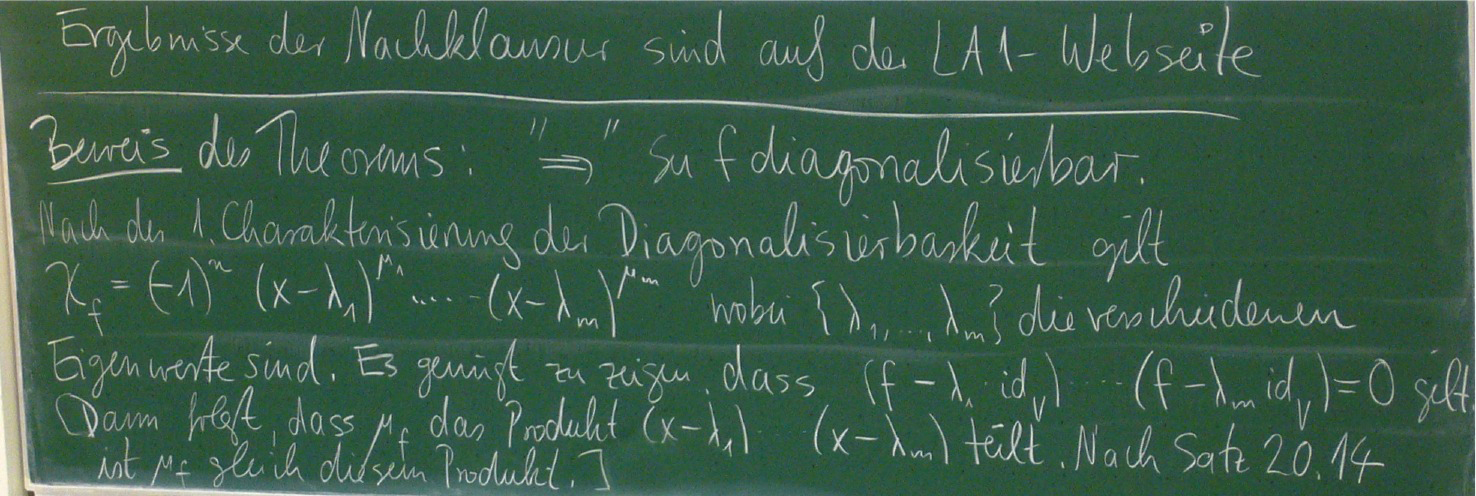 Ergebnisse der Nachklausur sind auf der LA1-Webseite
Beweis des Theorems: "⇒" Sei f diagonalisierbar.
Nach der 1. Charakterisierung der Diagonalisierbarkeit gilt
χ_f = (-1)^n (x-λ_1)^{μ_1} ..... (x-λ_m)^{μ_m} wobei {λ_1,...,λ_m} die verschiedenen
Eigenwerte sind. Es genügt zu zeigen, dass (f-λ_1 id_V) ... (f-λ_m id_V)=0 gilt.
[Dann folgt, dass μ_f das Produkt (x-λ_1) ... (x-λ_m) teilt. Nach Satz 20.14
ist μ_f gleich diesem Produkt.]